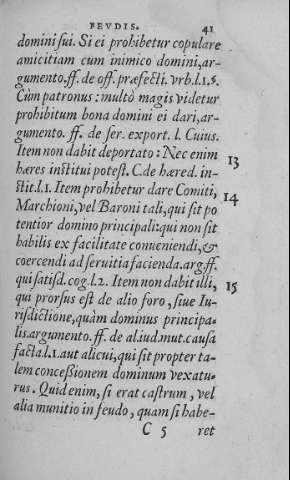 FEVDIS. 41
domini sui. Si ei prohibetur copulare
amicitiam cum inimico domini, ar-
gumento. ff. de off. præfecti. vrb. l. 1. §.
Cùm patronus: multò magis videtur
prohibitum bona domini ei dari, ar-
gumento. ff. de ser. export. l. Cuius.
Item non dabit deportato: Nec enim 13
hæres institui potest. C. de hæred. in-
stit. l. 1. Item prohibetur dare Comiti, 14
Marchioni, vel Baroni tali, qui sit po
tentior domino principali: qui non sit
habilis ex facilitate conueniendi, &
coercendi ad seruitia facienda. arg. ff.
qui satisd. cog. l. 2. Item non dabit illi, 15
qui prorsus est de alio foro, siue Iu-
risdictione, quàm dominus principa-
lis. argumento. ff. de al. iud. mut. causa
facta. l. 1. aut alicui, qui sit propter ta-
lem concessionem dominum vexatu-
rus. Quid enim, si erat castrum, vel
alia munitio in feudo, quam si habe-
C 5 ret